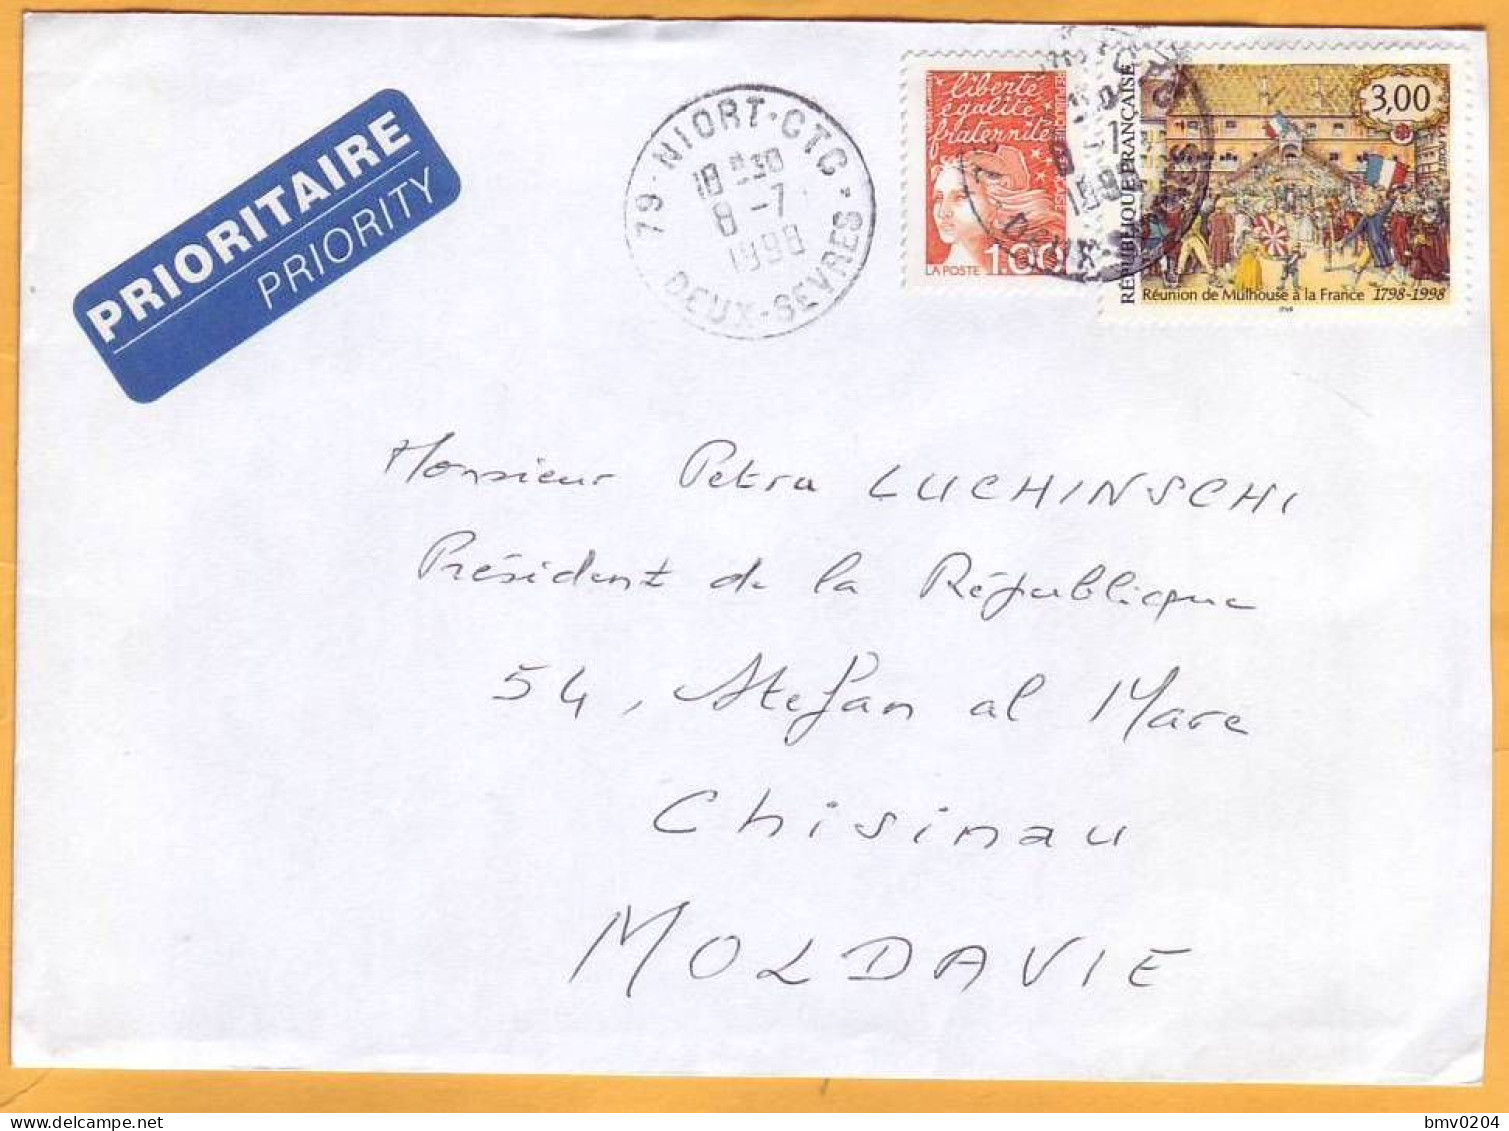 PRIORITAIRE
PRIORITY
79-NIORT-CTC
18 30
8-7
1998
DEUX-SEVRES
liberté
égalité
fraternité
LA POSTE 1.00
RÉPUBLIQUE FRANÇAISE
3,00
Réunion de Mulhouse à la France 1798-1998
Monsieur Petra LUCHINSCHI
Président de la République
54, Stefan al Mare
Chisinau
MOLDAVIE
delcampe.net
bmv0204